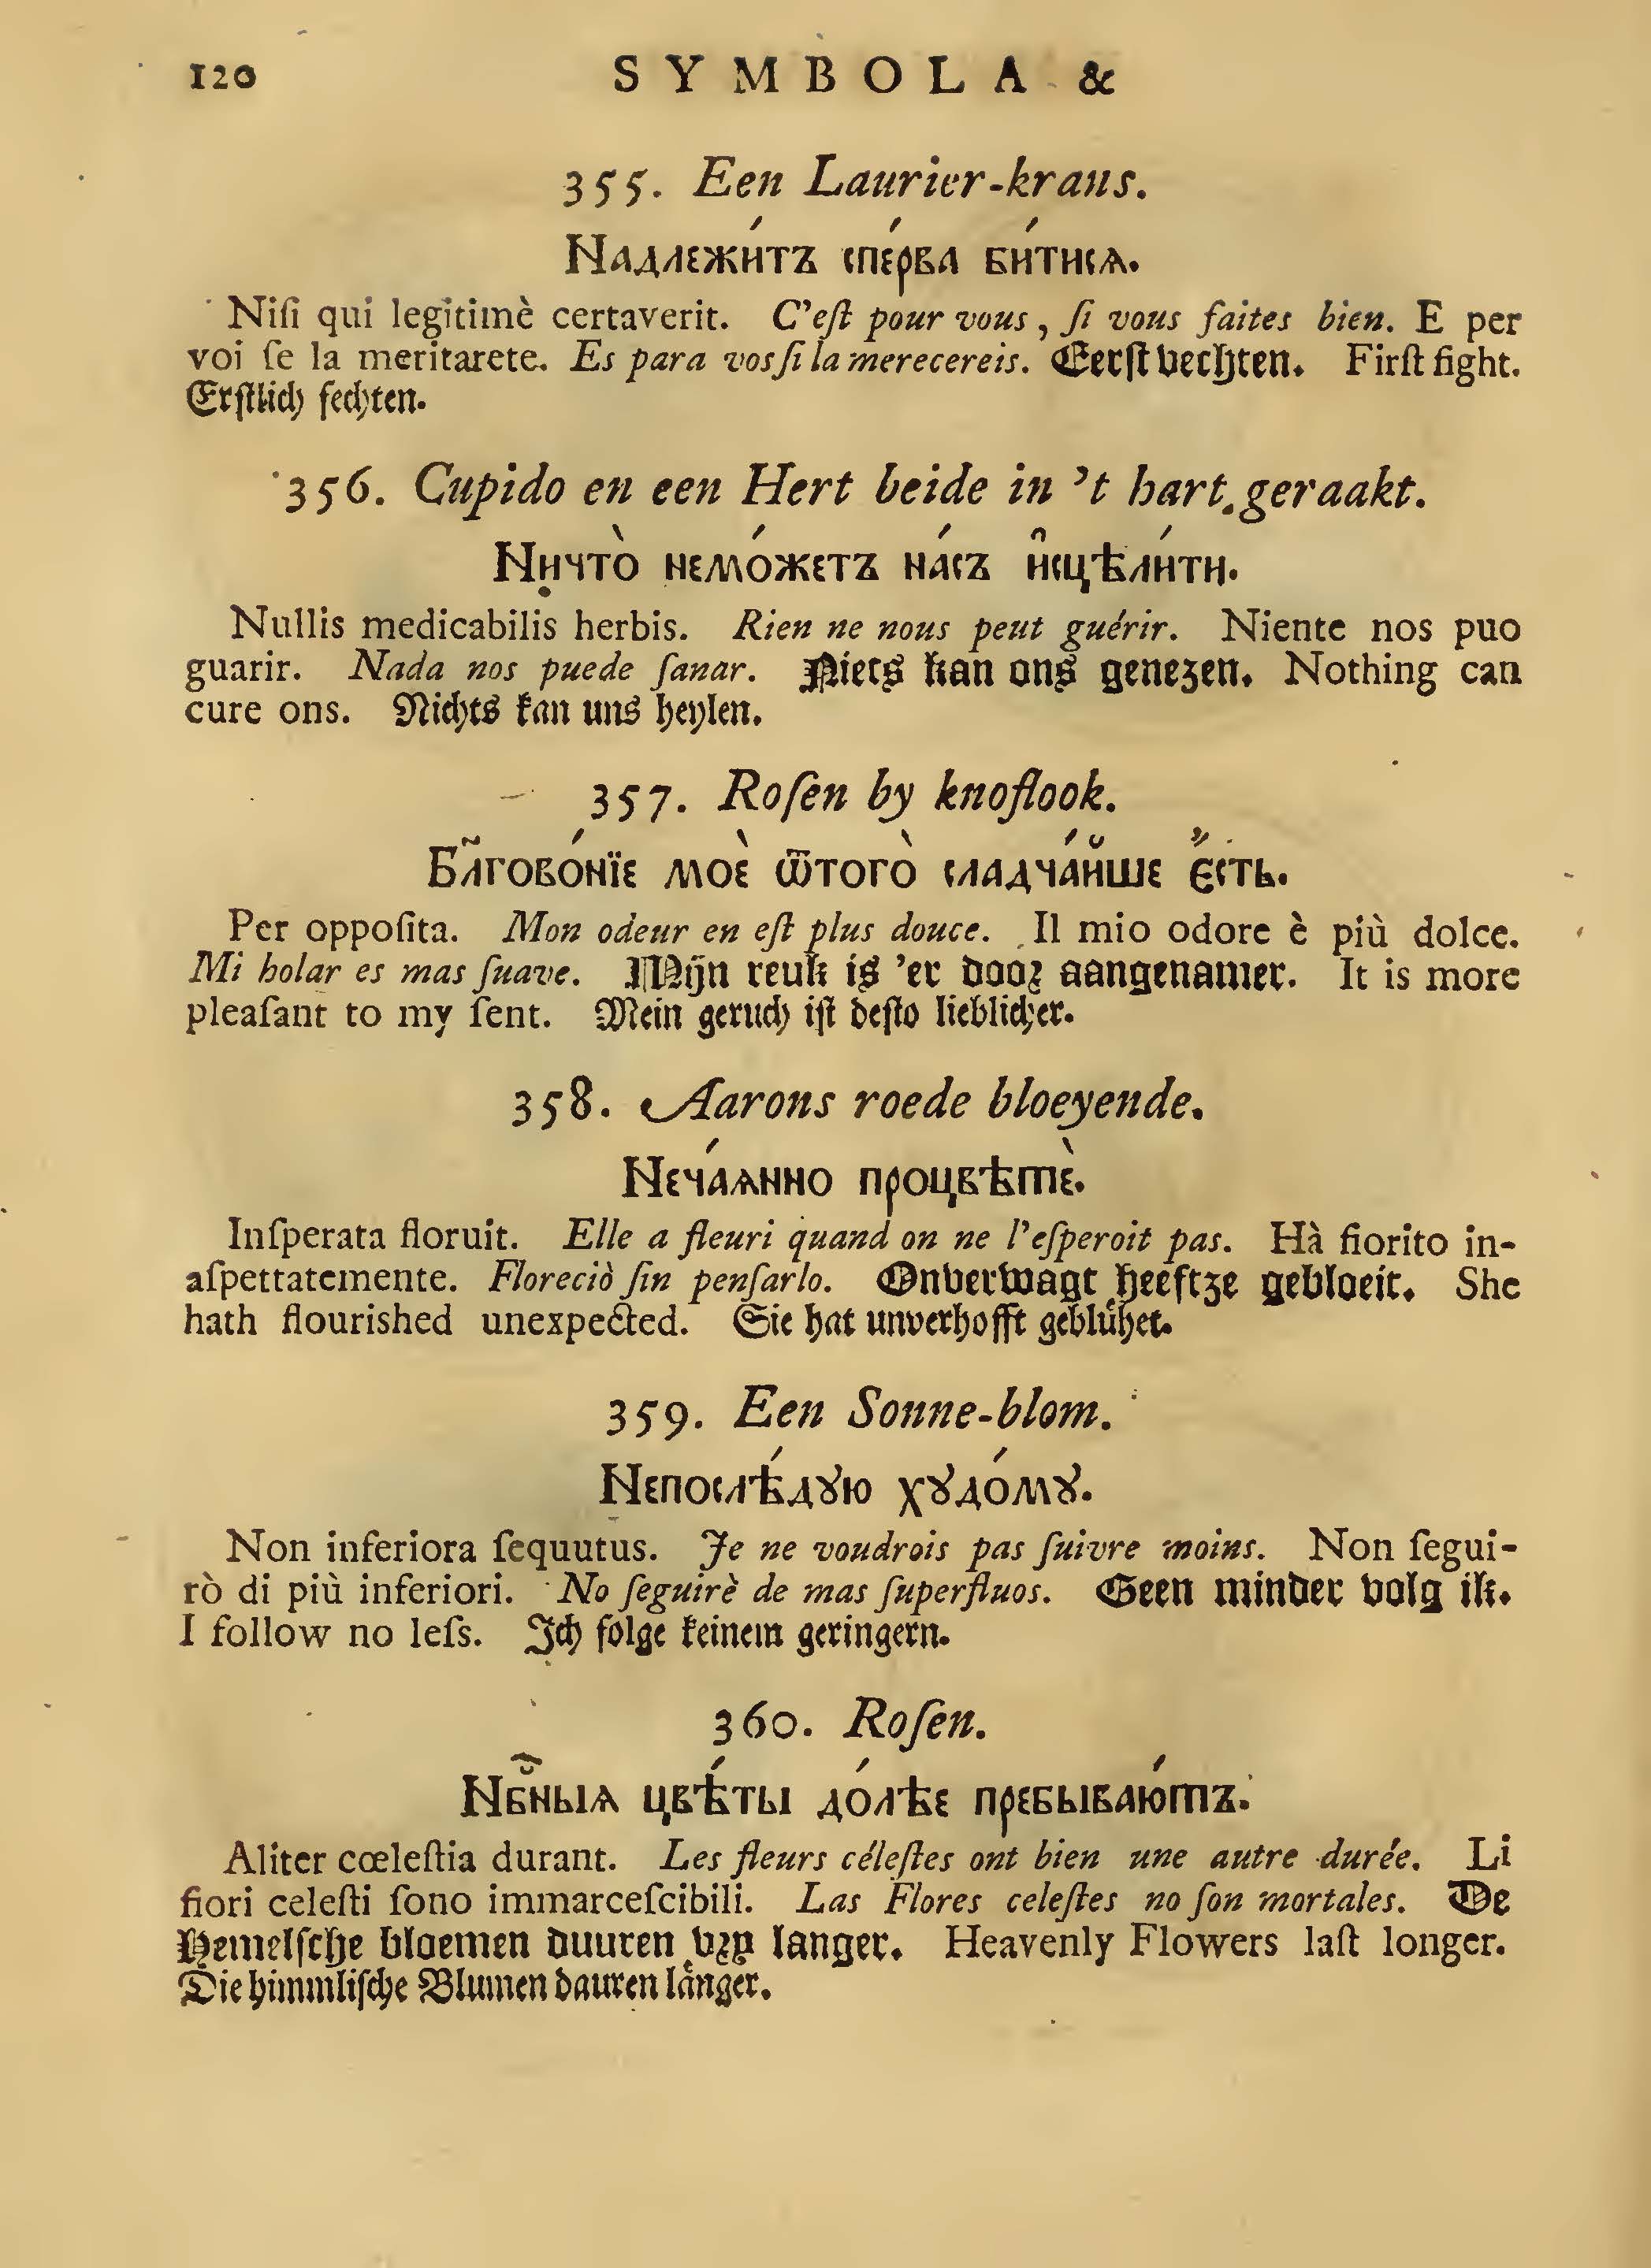 120 SYMBOLA &
355. Een Laurier-krans.
Надлежи́тъ спе́рва би́тисѧ.
Niſi qui legitimè certaverit. C'eſt pour vous, ſi vous faites bien. E per
voi ſe la meritarete. Es para vos ſi la merecereis. Eerſt vechten. Firſt fight.
Erſtlich fechten.
356. Cupido en een Hert beide in 't hart geraakt.
Ничто̀ немо́жетъ на́съ и҆сцѣли́ти.
Nullis medicabilis herbis. Rien ne nous peut guérir. Niente nos puo
guarir. Nada nos puede ſanar. Niets kan ons genezen. Nothing can
cure ons. Nichts kan uns heylen.
357. Roſen by knoflook.
Бл҃гово́нїе моѐ ѿтого̀ сладча́йше є҆́сть.
Per oppoſita. Mon odeur en eſt plus douce. Il mio odore è più dolce.
Mi holar es mas ſuave. Mijn reuk is 'er door aangenamer. It is more
pleaſant to my ſent. Mein geruch iſt deſto lieblicher.
358. Aarons roede bloeyende.
Неча́ѧнно процвѣтѐ.
Inſperata floruit. Elle a fleuri quand on ne l'eſperoit pas. Hà fiorito in-
aſpettatemente. Floreciò ſin penſarlo. Onverwagt heeftze gebloeit. She
hath flourished unexpected. Sie hat unverhofft geblühet.
359. Een Sonne-blom.
Непослѣ́дꙋю хꙋдо́мꙋ.
Non inferiora ſequutus. Je ne voudrois pas ſuivre moins. Non ſegui-
rò di più inferiori. No ſeguirè de mas ſuperfluos. Geen minder volg ik.
I follow no leſs. Ich folge keinem geringern.
360. Roſen.
Нб҃ныѧ цвѣ́ты до́лѣе пребываю́тъ.
Aliter cœleſtia durant. Les fleurs céleſtes ont bien une autre durée. Li
fiori celeſti ſono immarceſcibili. Las Flores celeſtes no ſon mortales. De
Hemelſche bloemen duuren vry langer. Heavenly Flowers laſt longer.
Die himmliſche Blumen dauren länger.